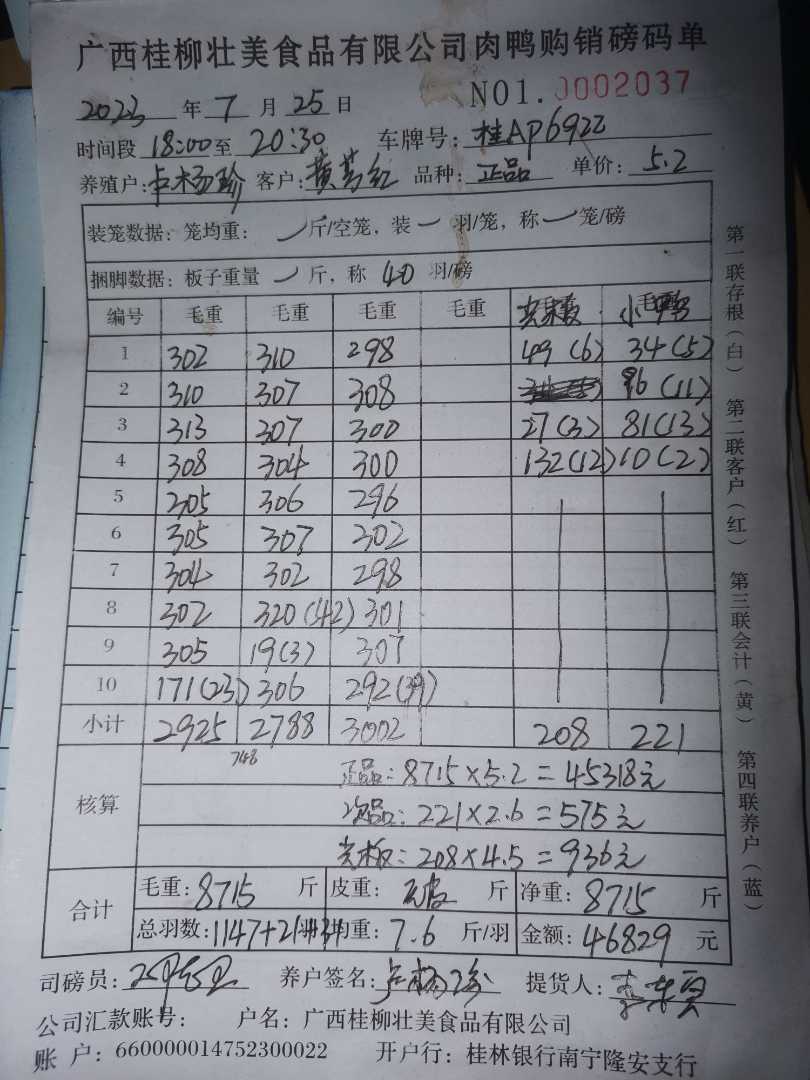 广西桂柳壮美食品有限公司肉鸭购销磅码单
NO1. 0002037
2023 年 7 月 25 日
时间段 18:00 至 20:30 车牌号: 桂AP6922
养殖户: 卢杨珍 客户: 品种: 正品 单价: 5.2
装笼数据: 笼均重: 斤/空笼, 装一 羽/笼, 称一 笼/磅
捆脚数据: 板子重量 一 斤, 称 40 羽/磅
编号 毛重 毛重 毛重 毛重 毛重 小鸭
1 302 310 298 49(6) 34(5)
2 310 307 308 96(11)
3 313 307 300 27(3) 81(13)
4 308 304 300 132(12) 10(2)
5 305 306 296
6 305 307 302
7 304 302 298
8 302 320(42) 301
9 305 19(3) 307
10 171(23) 306 292(39)
小计 2925 2788 3002 208 221
748
核算 正品: 8715×5.2=45318元
次品: 221×2.6=575元
光板: 208×4.5=936元
合计 毛重: 8715 斤 皮重: 斤 净重: 8715 斤
总羽数: 1147+21+31 均重: 7.6 斤/羽 金额: 46829 元
司磅员: 养户签名: 卢杨珍 提货人:
公司汇款账号: 户名: 广西桂柳壮美食品有限公司
账 户: 660000014752300022 开户行: 桂林银行南宁隆安支行
第一联存根(白) 第二联客户(红) 第三联会计(黄) 第四联养户(蓝)